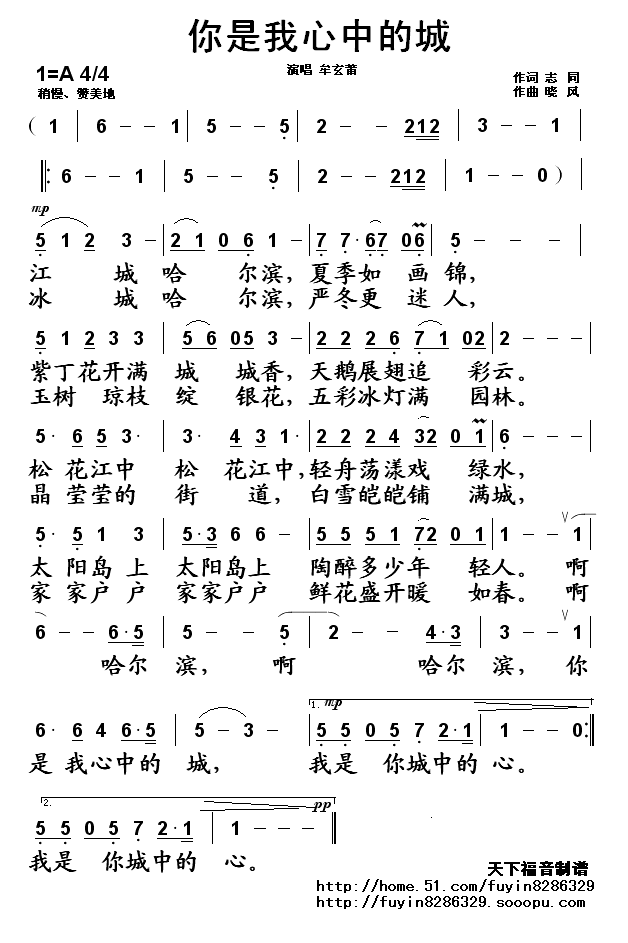 你是我心中的城
1=A 4/4
演唱 牟玄莆
作词 志 同
稍慢、赞美地
作曲 晓 风
( 1 | 6 - - 1 | 5 - - 5 | 2 - - 212 | 3 - - 1 |
‖: 6 - - 1 | 5 - - 5 | 2 - - 212 | 1 - - 0 ) |
mp
5 1 2 3 - | 2 1 0 6 1 - | 7 7· 67 06 | 5 - - - |
江 城 哈 尔滨，夏季如 画 锦，
冰 城 哈 尔滨，严冬更 迷 人，
5 1 2 3 3 | 5 6 05 3 - | 2 2 2 6 7 1 02 | 2 - - - |
紫丁花开满 城 城香，天鹅展翅追 彩云。
玉树 琼枝 绽 银花，五彩冰灯满 园林。
5· 6 5 3· | 3· 4 3 1· | 2 2 2 4 32 0 1 | 6 - - - |
松 花江中 松 花江中，轻舟荡漾戏 绿水，
晶 莹莹的 街 道，白雪皑皑铺 满城，
5· 5 1 3 | 5·3 6 6 - | 5 5 5 1 72 0 1 | 1 - - V 1 |
太 阳岛 上 太阳岛上 陶醉多少年 轻人。 啊
家 家户 户 家家户户 鲜花盛开暖 如春。 啊
6 - - 6·5 | 5 - - 5 | 2 - - 4·3 | 3 - - V 1 |
哈尔 滨， 啊 哈尔 滨， 你
1. mp
6· 6 4 6·5 | 5 - 3 - | 5 5 0 5 7 2·1 | 1 - - 0 :‖
是 我心中的 城， 我是 你城中的 心。
2. pp
5 5 0 5 7 2·1 | 1 - - - ‖
我是 你城中的 心。
天下福音制谱
http://home.51.com/fuyin8286329
http://fuyin8286329.sooopu.com